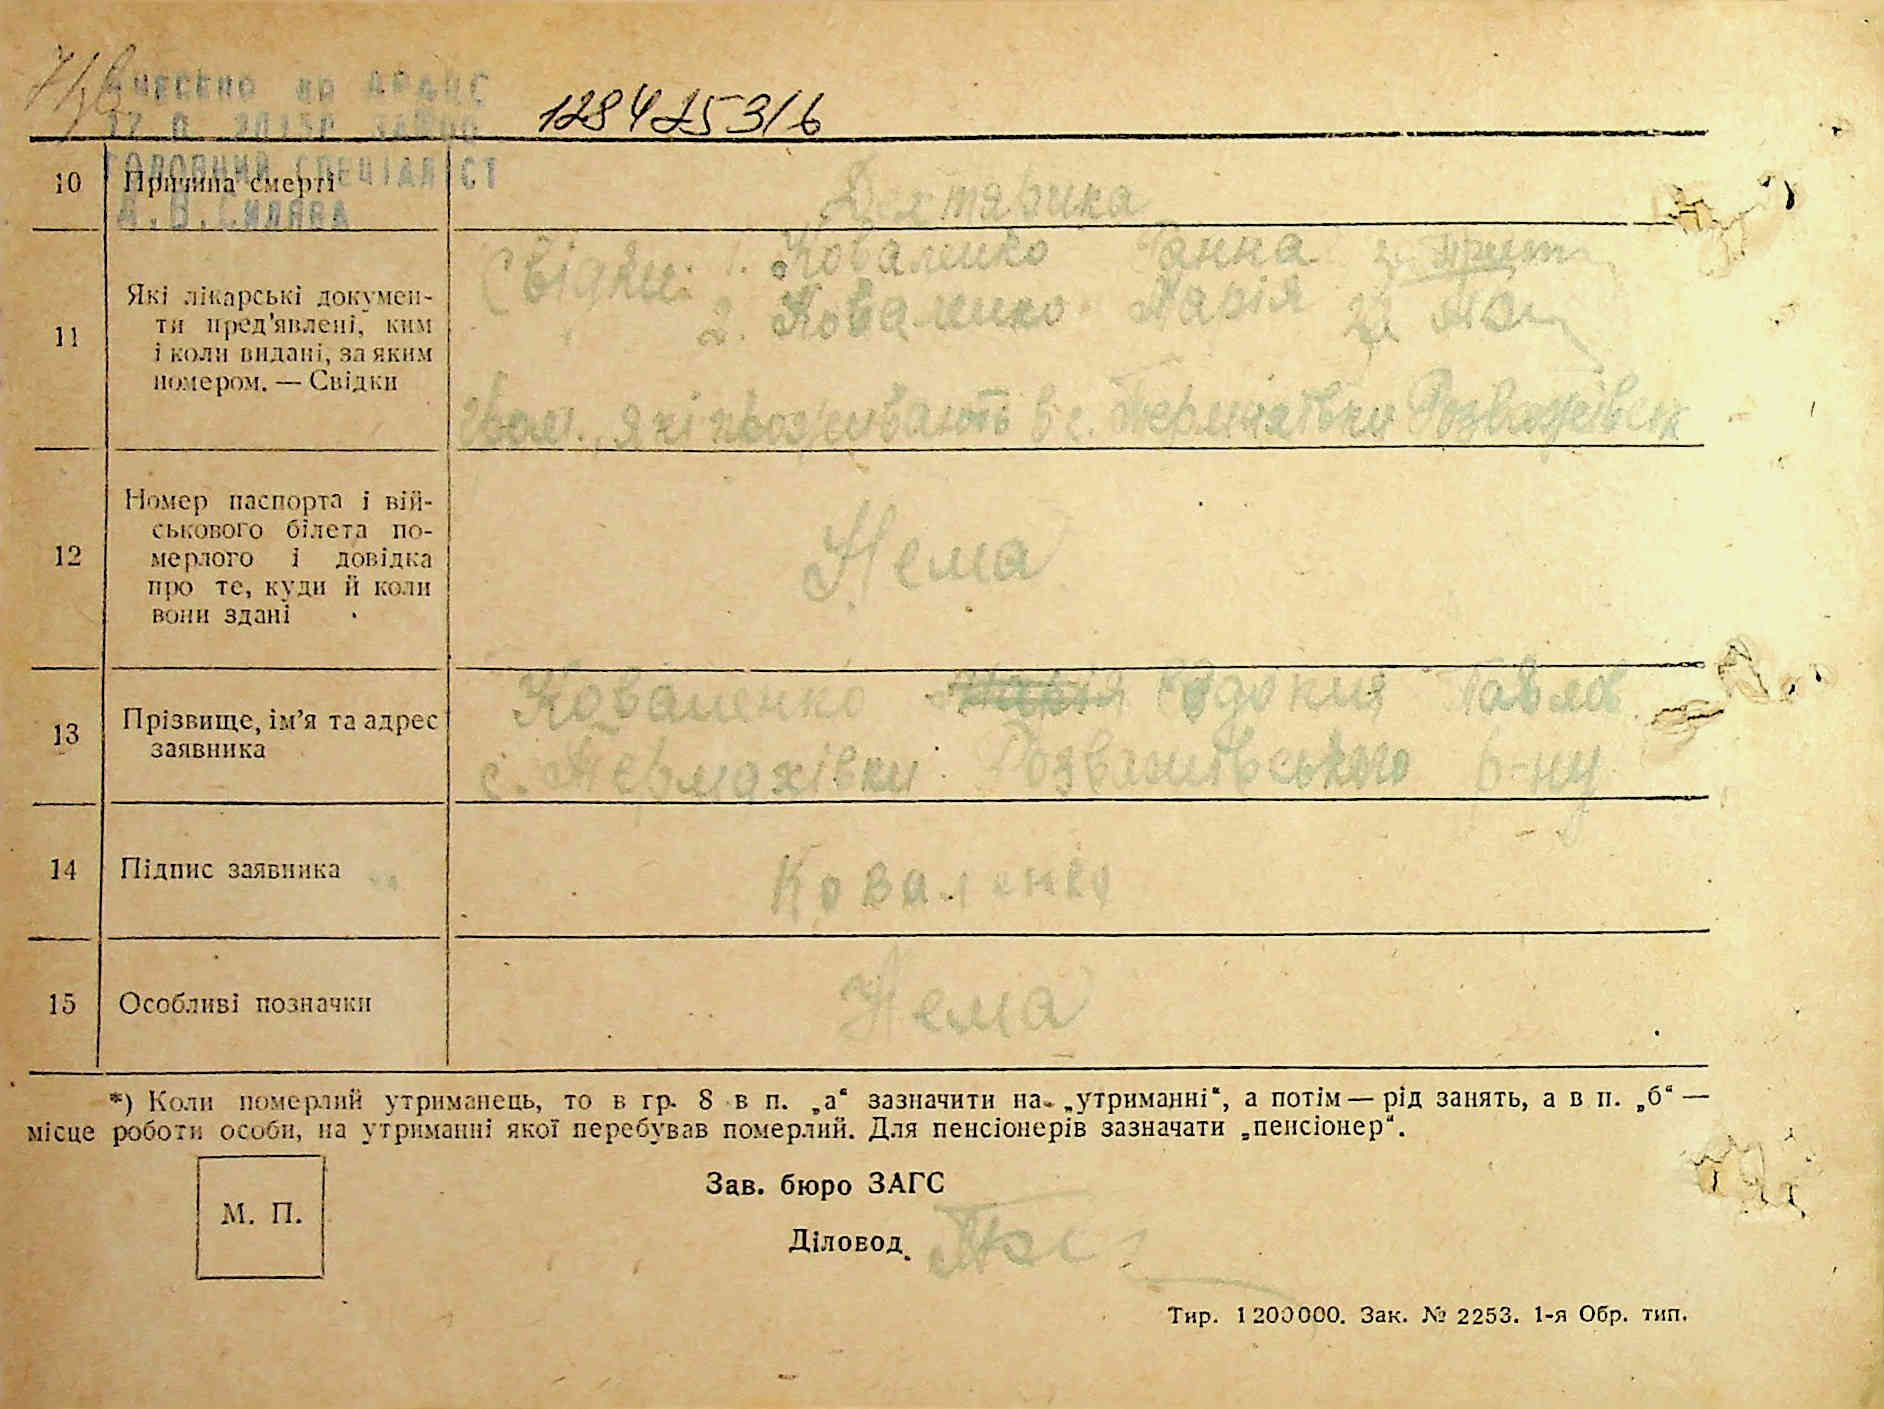 128425316
10 Причина смерті Дехтярика
Свідки: 1. Коваленко Ганна
2. Коваленко Марія
11 Які лікарські докумен-
ти пред'явлені, ким
і коли видані, за яким
номером. — Свідки
які проживають в с. Термахівки Розважівськ
Номер паспорта і вій-
ськового білета по-
12 мерлого і довідка Нема
про те, куди й коли
вони здані
Коваленко Марія Євдокия Павлов
13 Прізвище, ім’я та адрес
заявника
с. Термахівки Розважівського р-ну
14 Підпис заявника Коваленко
15 Особливі позначки Нема
*) Коли померлий утриманець, то в гр. 8 в п. „а“ зазначити на „утриманні“, а потім — рід занять, а в п. „б“ —
місце роботи особи, на утриманні якої перебував померлий. Для пенсіонерів зазначати „пенсіонер“.
Зав. бюро ЗАГС
М. П.
Діловод
Тир. 1200000. Зак. № 2253. 1-я Обр. тип.